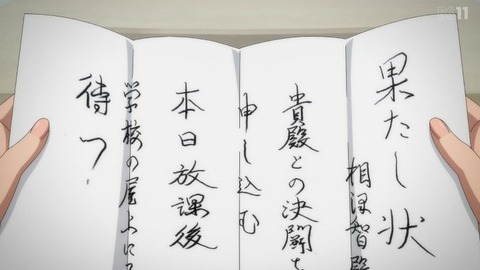 果たし状
相澤智殿
貴殿との決闘を
申し込む
本日放課後
学校の屋上にて
待つ
BS11